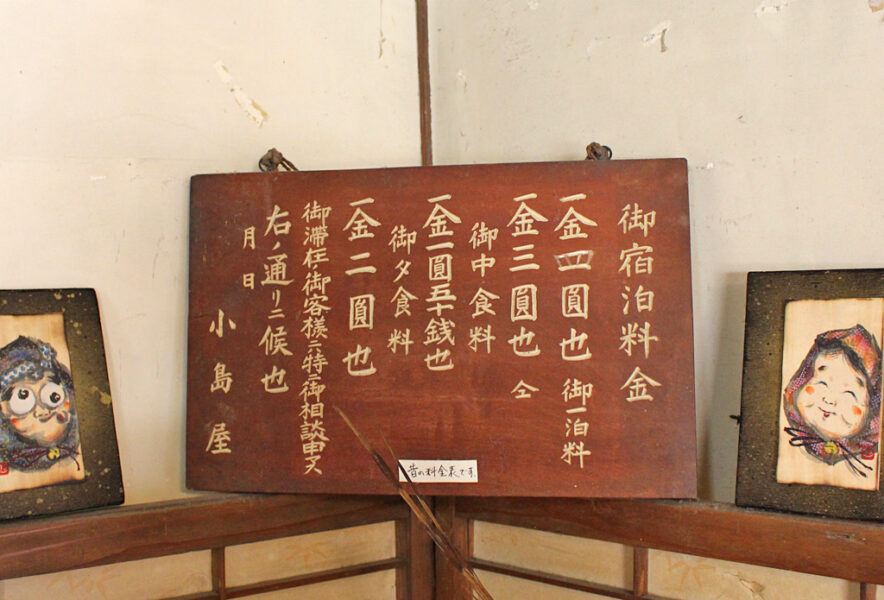 御宿泊料金
一金四圓也 御一泊料
一金三圓也 仝
御中食料
一金一圓五十銭也
御夕食料
一金二圓也
御滞在ノ御客様ニ特ニ御相談申ス
右ノ通リニ候也
月日
小島屋
昔の料金表です。